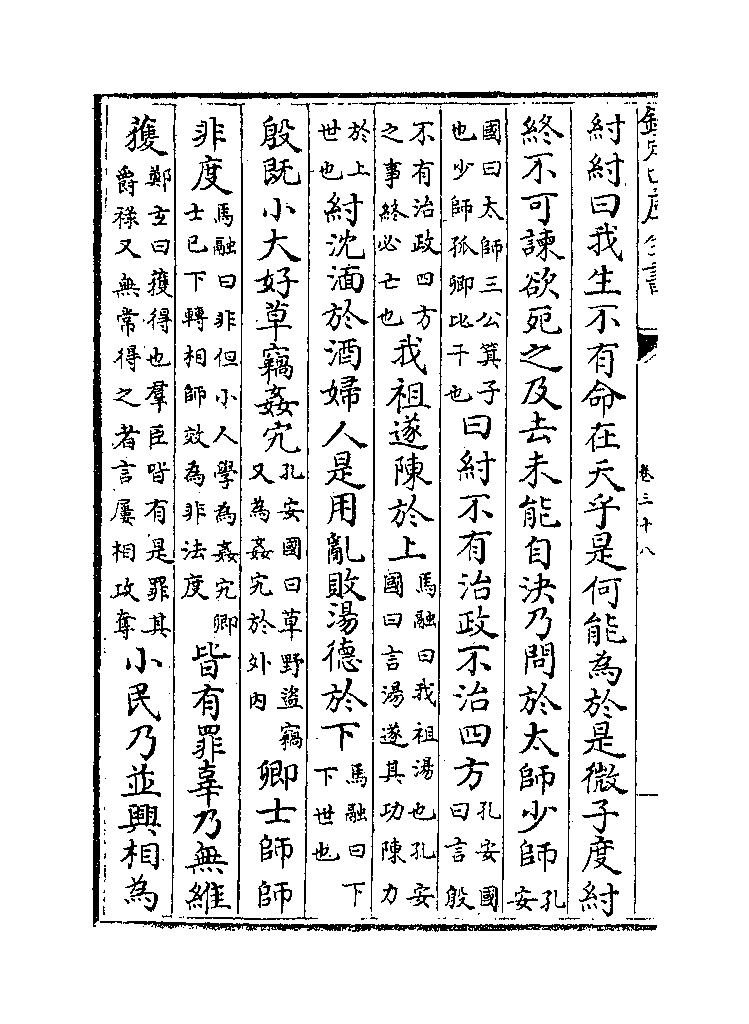 欽定四庫全書
卷三十八
紂紂曰我生不有命在天乎是何能為於是微子度紂
終不可諫欲死之及去未能自決乃問於太師少師孔安
國曰太師三公箕子也少師孤卿比干也曰紂不有治政不治四方孔安國曰言殷
不有治政四方之事終必亡也我祖遂陳於上馬融曰我祖湯也孔安國曰言湯遂其功陳力
於上世也紂沈湎於酒婦人是用亂敗湯德於下馬融曰下下世也
殷既小大好草竊姦宄孔安國曰草野盜竊又為姦宄於外內卿士師師
非度馬融曰非但小人學為姦宄卿士已下轉相師效為非法度皆有罪辜乃無維
獲鄭玄曰獲得也羣臣皆有是罪其爵祿又無常得之者言屢相攻奪小民乃並興相為